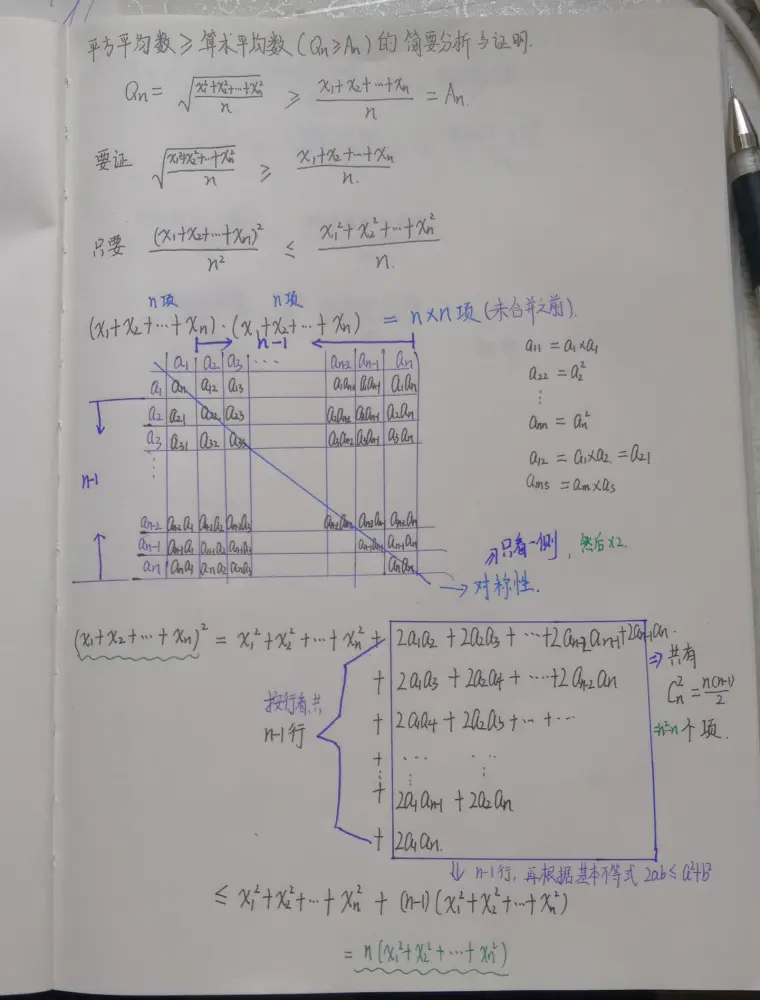 平方平均数 ≥ 算术平均数 (Qn ≥ An) 的简要分析与证明.
Qn = √((x₁²+x₂²+…+xn²)/n) ≥ (x₁+x₂+…+xn)/n = An.
要证 √((x₁²+x₂²+…+xn²)/n) ≥ (x₁+x₂+…+xn)/n.
只要 (x₁+x₂+…+xn)²/n² ≤ (x₁²+x₂²+…+xn²)/n.
n项 n项
(x₁+x₂+…+xn)·(x₁+x₂+…+xn) = n×n项 (未合并之前).
n-1
a₁ a₂ a₃ … an-2 an-1 an
a₁ a₁₁ a₁₂ a₁₃ a₁an-2 a₁an-1 a₁an
a₂ a₂₁ a₂₂ a₂₃ a₂an-2 a₂an-1 a₂an
a₃ a₃₁ a₃₂ a₃₃ a₃an-2 a₃an-1 a₃an
⋮
n-1
an-2 an-2a₁ an-2a₂ an-2a₃ an-2an-2 an-2an-1 an-2an
an-1 an-1a₁ an-1a₂ an-1a₃ an-1an-1 an-1an
an ana₁ ana₂ ana₃ anan
a₁₁ = a₁×a₁
a₂₂ = a₂²
⋮
ann = an²
a₁₂ = a₁×a₂ = a₂₁
ams = am×as
只看一侧, 然后×2.
→ 对称性.
(x₁+x₂+…+xn)² = x₁²+x₂²+…+xn² + 2a₁a₂ + 2a₂a₃ + … + 2an-2an-1 + 2an-1an.
+ 2a₁a₃ + 2a₂a₄ + … + 2an-2an
+ 2a₁a₄ + 2a₂a₅ + … + …
+ … …
⋮ ⋮ ⋮
+ 2a₁an-1 + 2a₂an
+ 2a₁an.
按行看,共
n-1行
⇒ 共有
Cn² = n(n-1)/2
⇒n²-n个项.
⇓ n-1行, 再根据基本不等式 2ab ≤ a²+b²
≤ x₁²+x₂²+…+xn² + (n-1)(x₁²+x₂²+…+xn²)
= n(x₁²+x₂²+…+xn²)